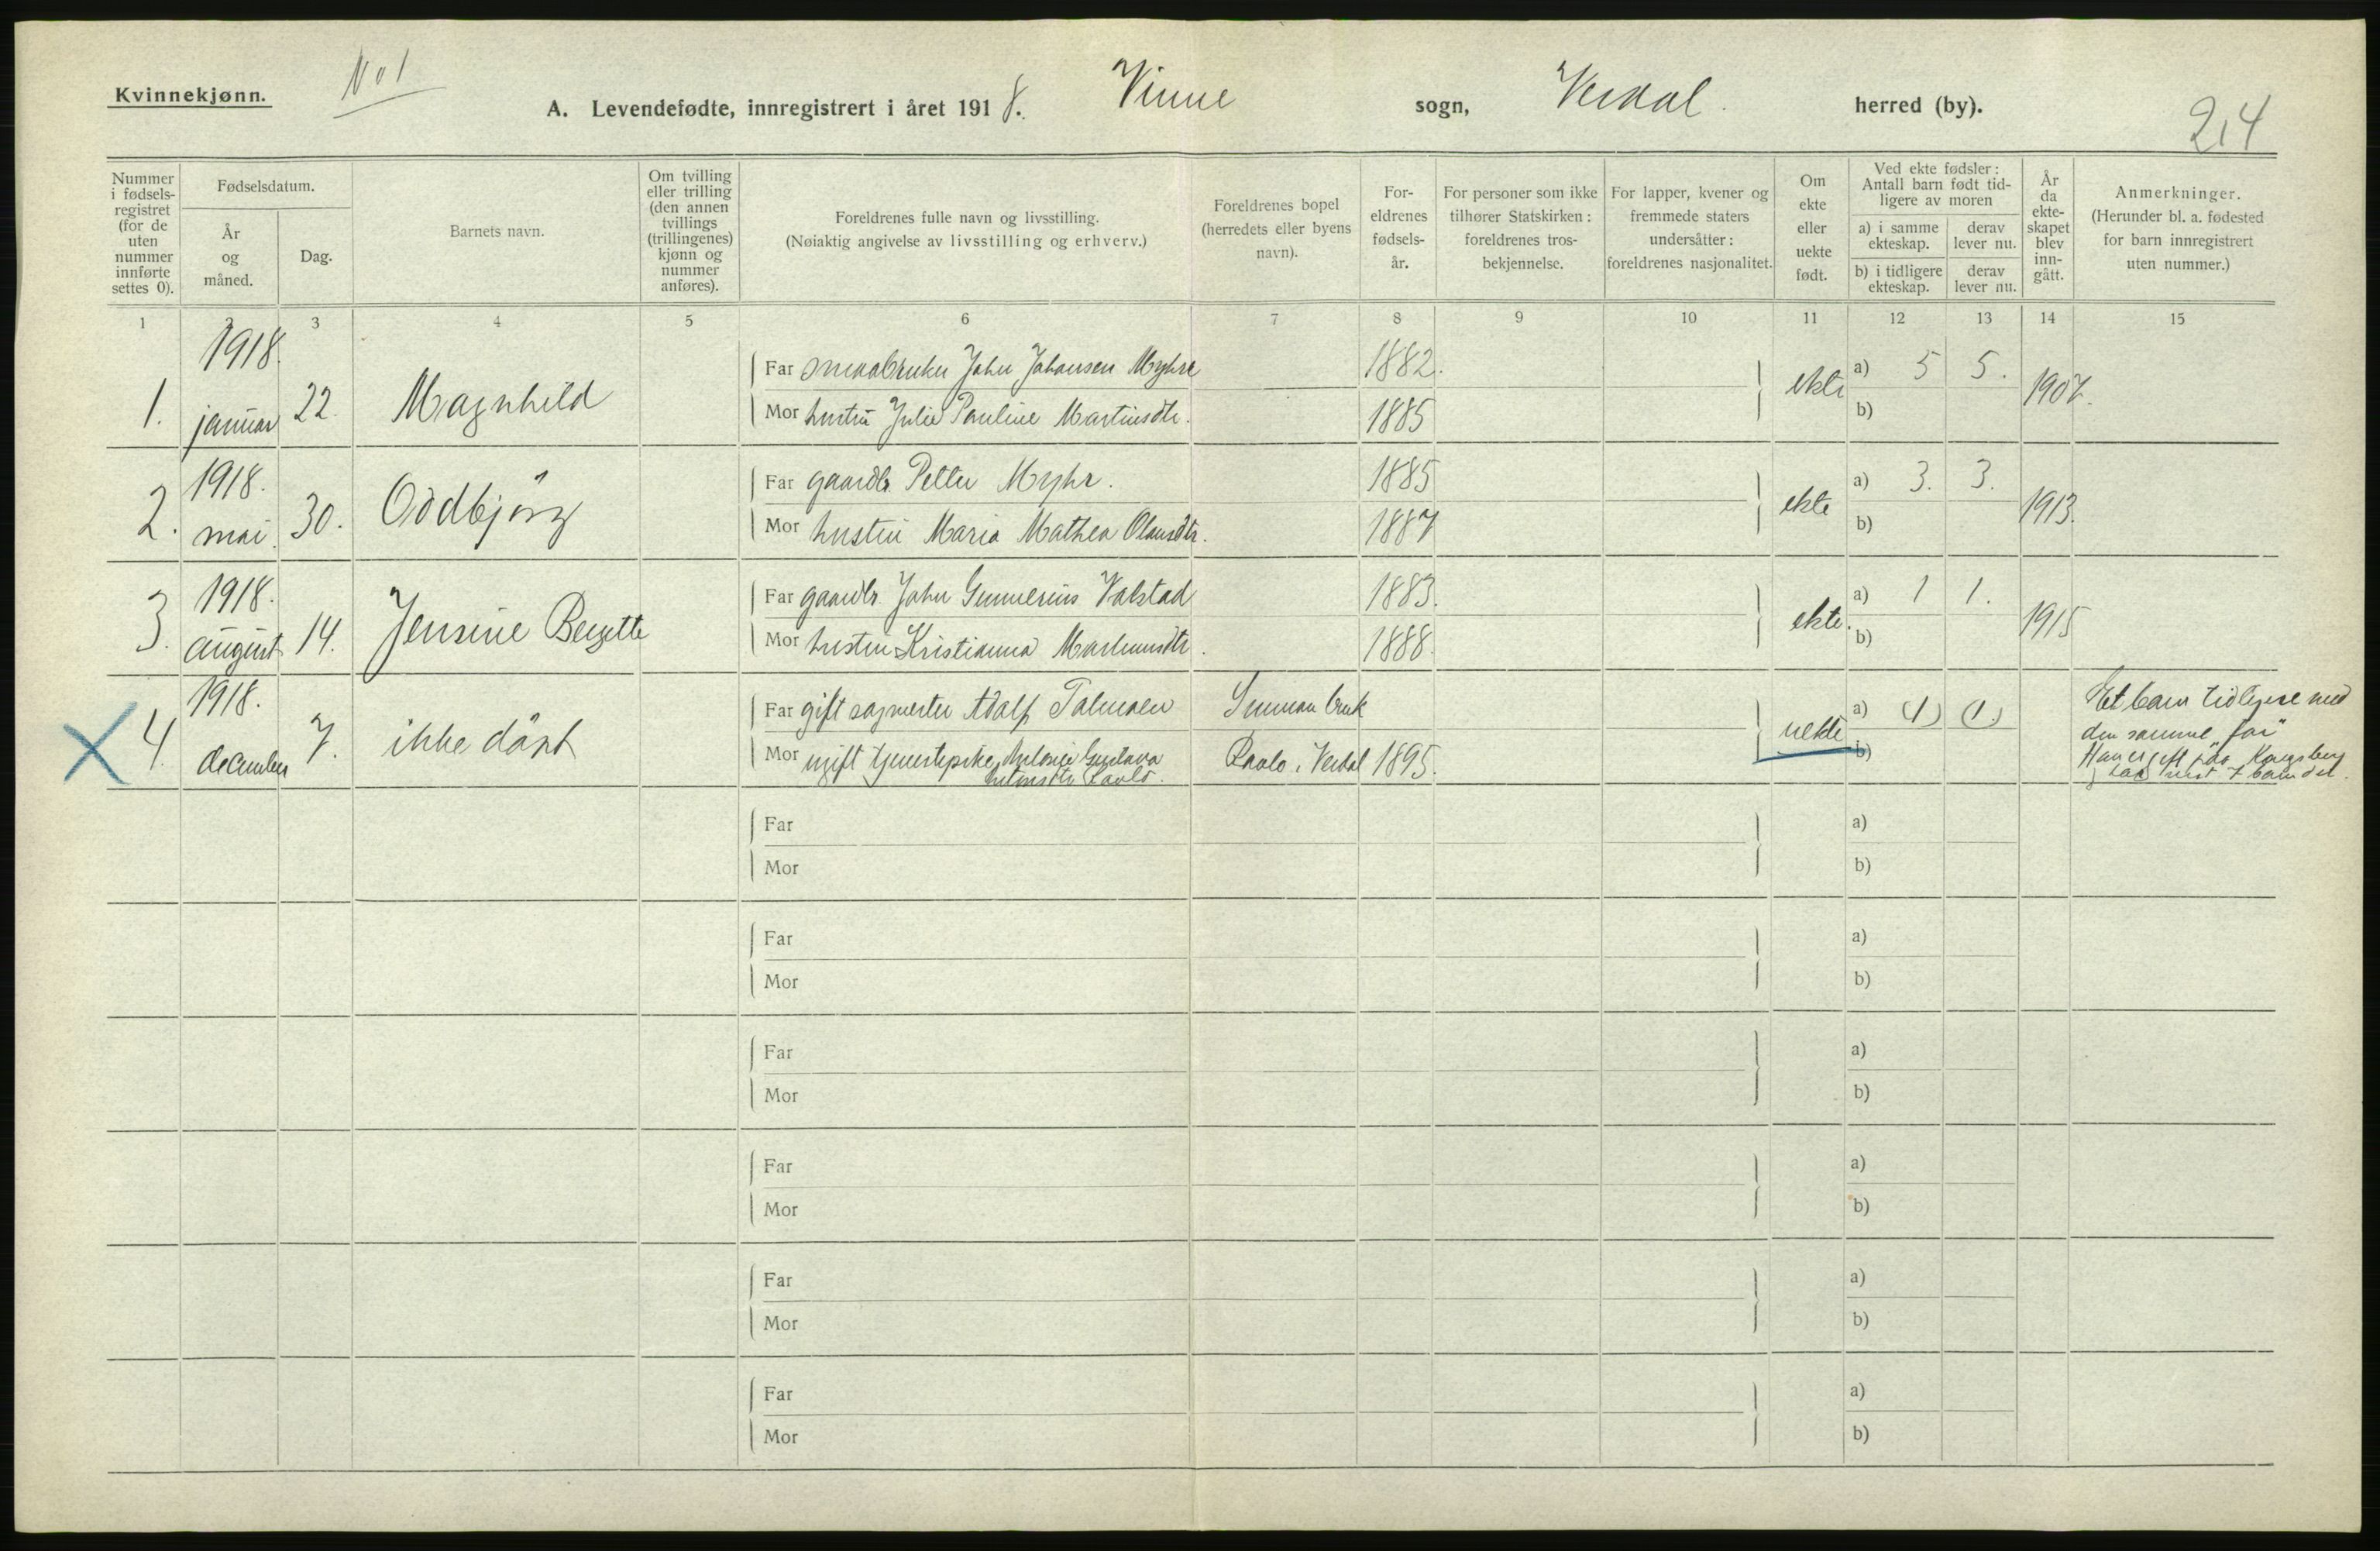 Kvinnekjønn.
No 1
A. Levendefødte, innregistrert i året 1918. Vinne sogn, Verdal. herred (by).
24
Nummer i fødselsregistret (for de uten nummer innførte settes 0).
Fødselsdatum.
År og måned.
Dag.
Barnets navn.
Om tvilling eller trilling (den annen tvillings (trillingenes) kjønn og nummer anføres).
Foreldrenes fulle navn og livsstilling.
(Nøiaktig angivelse av livsstilling og erhverv.)
Foreldrenes bopel (herredets eller byens navn).
Foreldrenes fødselsår.
For personer som ikke tilhører Statskirken: foreldrenes trosbekjennelse.
For lapper, kvener og fremmede staters undersåtter: foreldrenes nasjonalitet.
Om ekte eller uekte født.
Ved ekte fødsler: Antall barn født tidligere av moren
a) i samme ekteskap.
derav lever nu.
b) i tidligere ekteskap.
derav lever nu.
År da ekteskapet blev inngått.
Anmerkninger.
(Herunder bl. a. fødested for barn innregistrert uten nummer.)
1 2 3 4 5 6 7 8 9 10 11 12 13 14 15
1918.
1. januar 22. Magnhild
Far smaabruker John Johansen Myhre 1882.
Mor hustru Julie Pauline Martinsdtr. 1885
ekte a) 5 5. 1907.
b)
1918.
2. mai 30. Oddbjörg
Far gaardbr. Petter Myhr. 1885
Mor hustru Maria Mathea Olausdtr. 1887
ekte a) 3. 3. 1913.
b)
1918.
3. august 14. Jensine Bergette
Far gaardbr John Gunnerius Valstad 1883.
Mor hustru Kristianna 1888.
ekte. a) 1 1. 1915
b)
1918.
4. december 7. ikke döpt
Far gift sagmester Adolf Sunnan bruk
Mor ugift tjenestepike Antonie Gustava
Antonsdtr Ravlo. Ravlo i Verdal 1895.
uekte a) (1) (1.)
b)
Et barn tidligere med
den samme "far"
Han er gift paa Kongsberg
har vist 7 barn der.
Far a)
Mor b)
Far a)
Mor b)
Far a)
Mor b)
Far a)
Mor b)
Far a)
Mor b)
Far a)
Mor b)